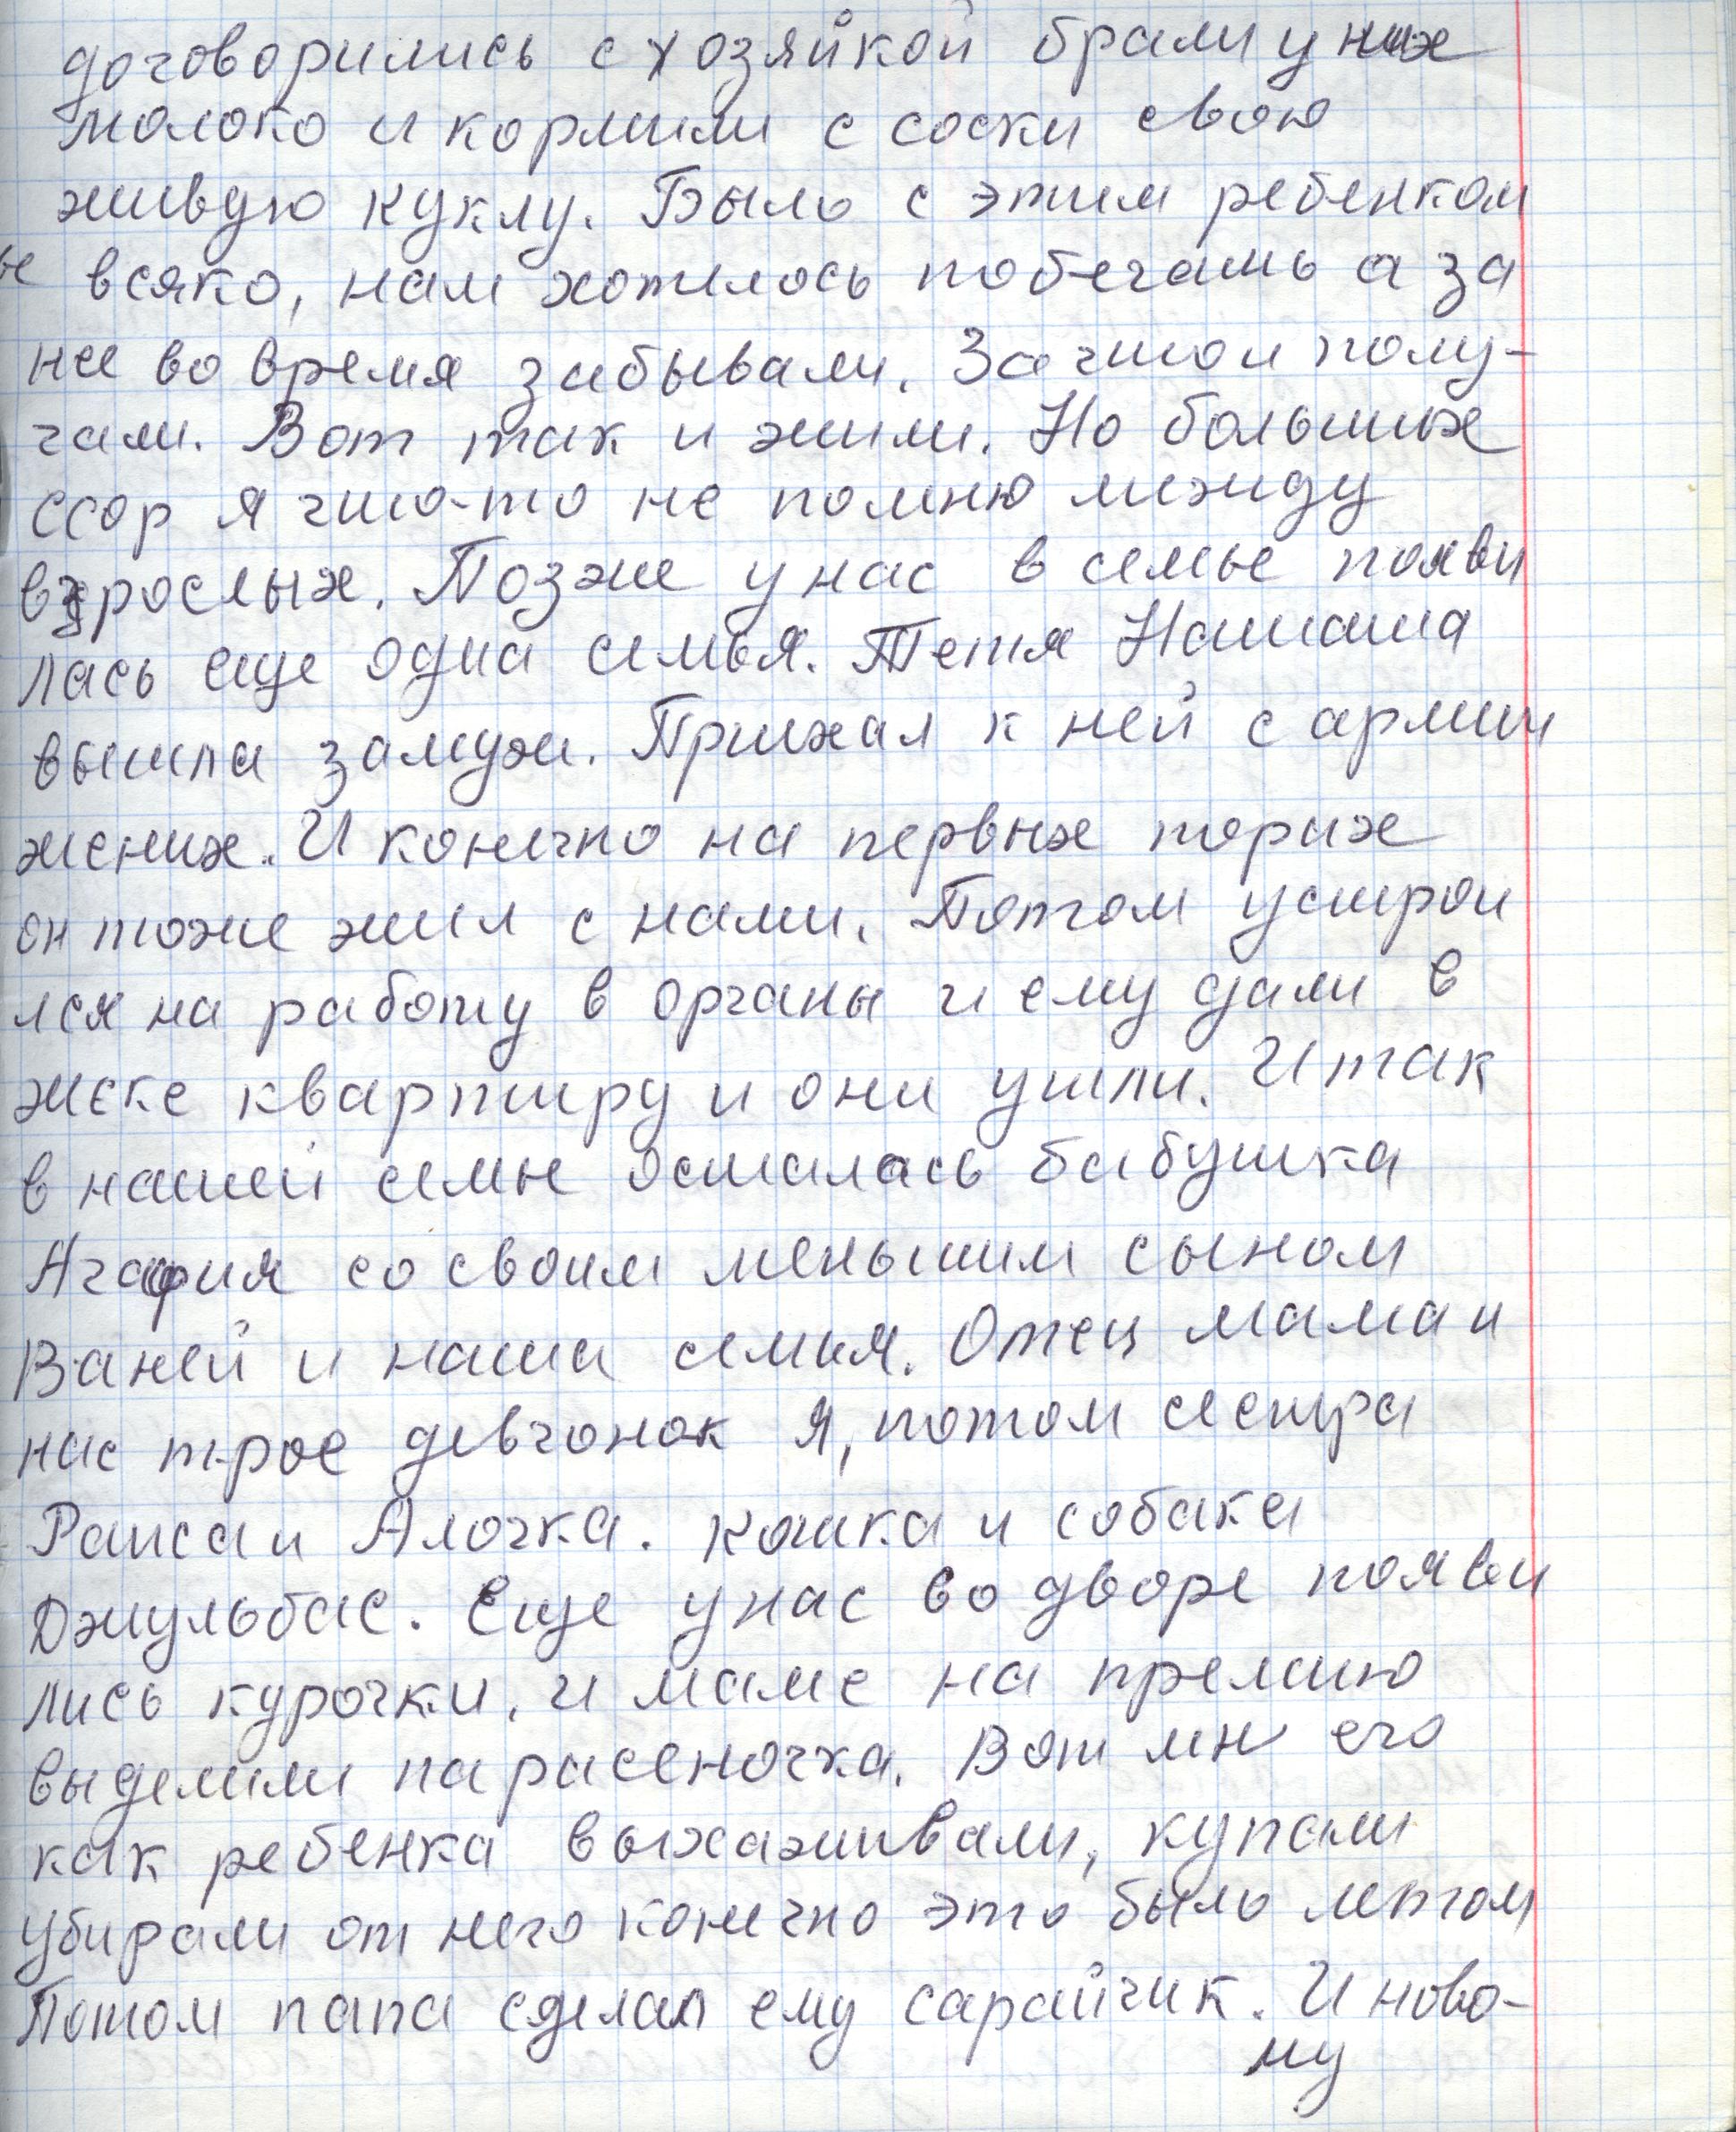 договорились с хозяйкой брали у них
молоко и кормили с соски свою
живую куклу. Было с этим ребенком
всяко, нам хотелось побегать а за
нее во время забывали. За что и полу-
чали. Вот так и жили. Но больших
ссор я что-то не помню между
взрослых. Позже у нас в семье появи
лась еще одна семья. Тетя Наташа
вышла замуж. Приехал к ней с армии
жених. И конечно на первых порах
он тоже жил с нами. Потом устрои
лся на работу в органы и ему дали в
жске квартиру и они ушли. И так
в нашей семье осталась бабушка
Агафия со своим меньшим сыном
Ваней и наша семья. Отец мама и
нас трое девчонок я, потом сестра
Раиса и Алочка. Кошка и собака
Джульбас. Еще у нас во дворе появи
лись курочки, и маме на премию
выделили парасеночка. Вот мы его
как ребенка выхаживали, купали
убирали от него конечно это было летом
Потом папа сделал ему сарайчик. И ново-
му